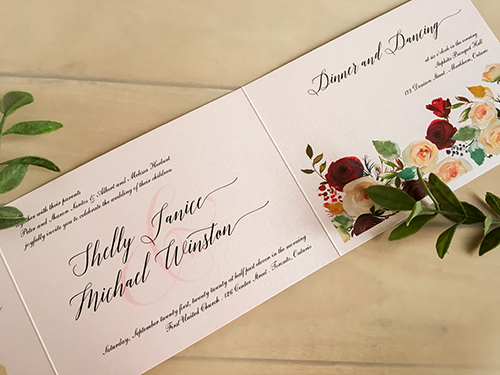 together with their parents
Peter and Sharon Santos & Albert and Melissa Herbert
joyfully invite you to celebrate the wedding of their children
Shelly Janice
&
Michael Winston
Saturday, september twenty first, twenty twenty at half past eleven in the morning
First United Church · 126 Center Street · Toronto, Ontario
Dinner and Dancing
at six o'clock in the evening
Sephila Banquet Hall
123 Denison Street · Markham, Ontario